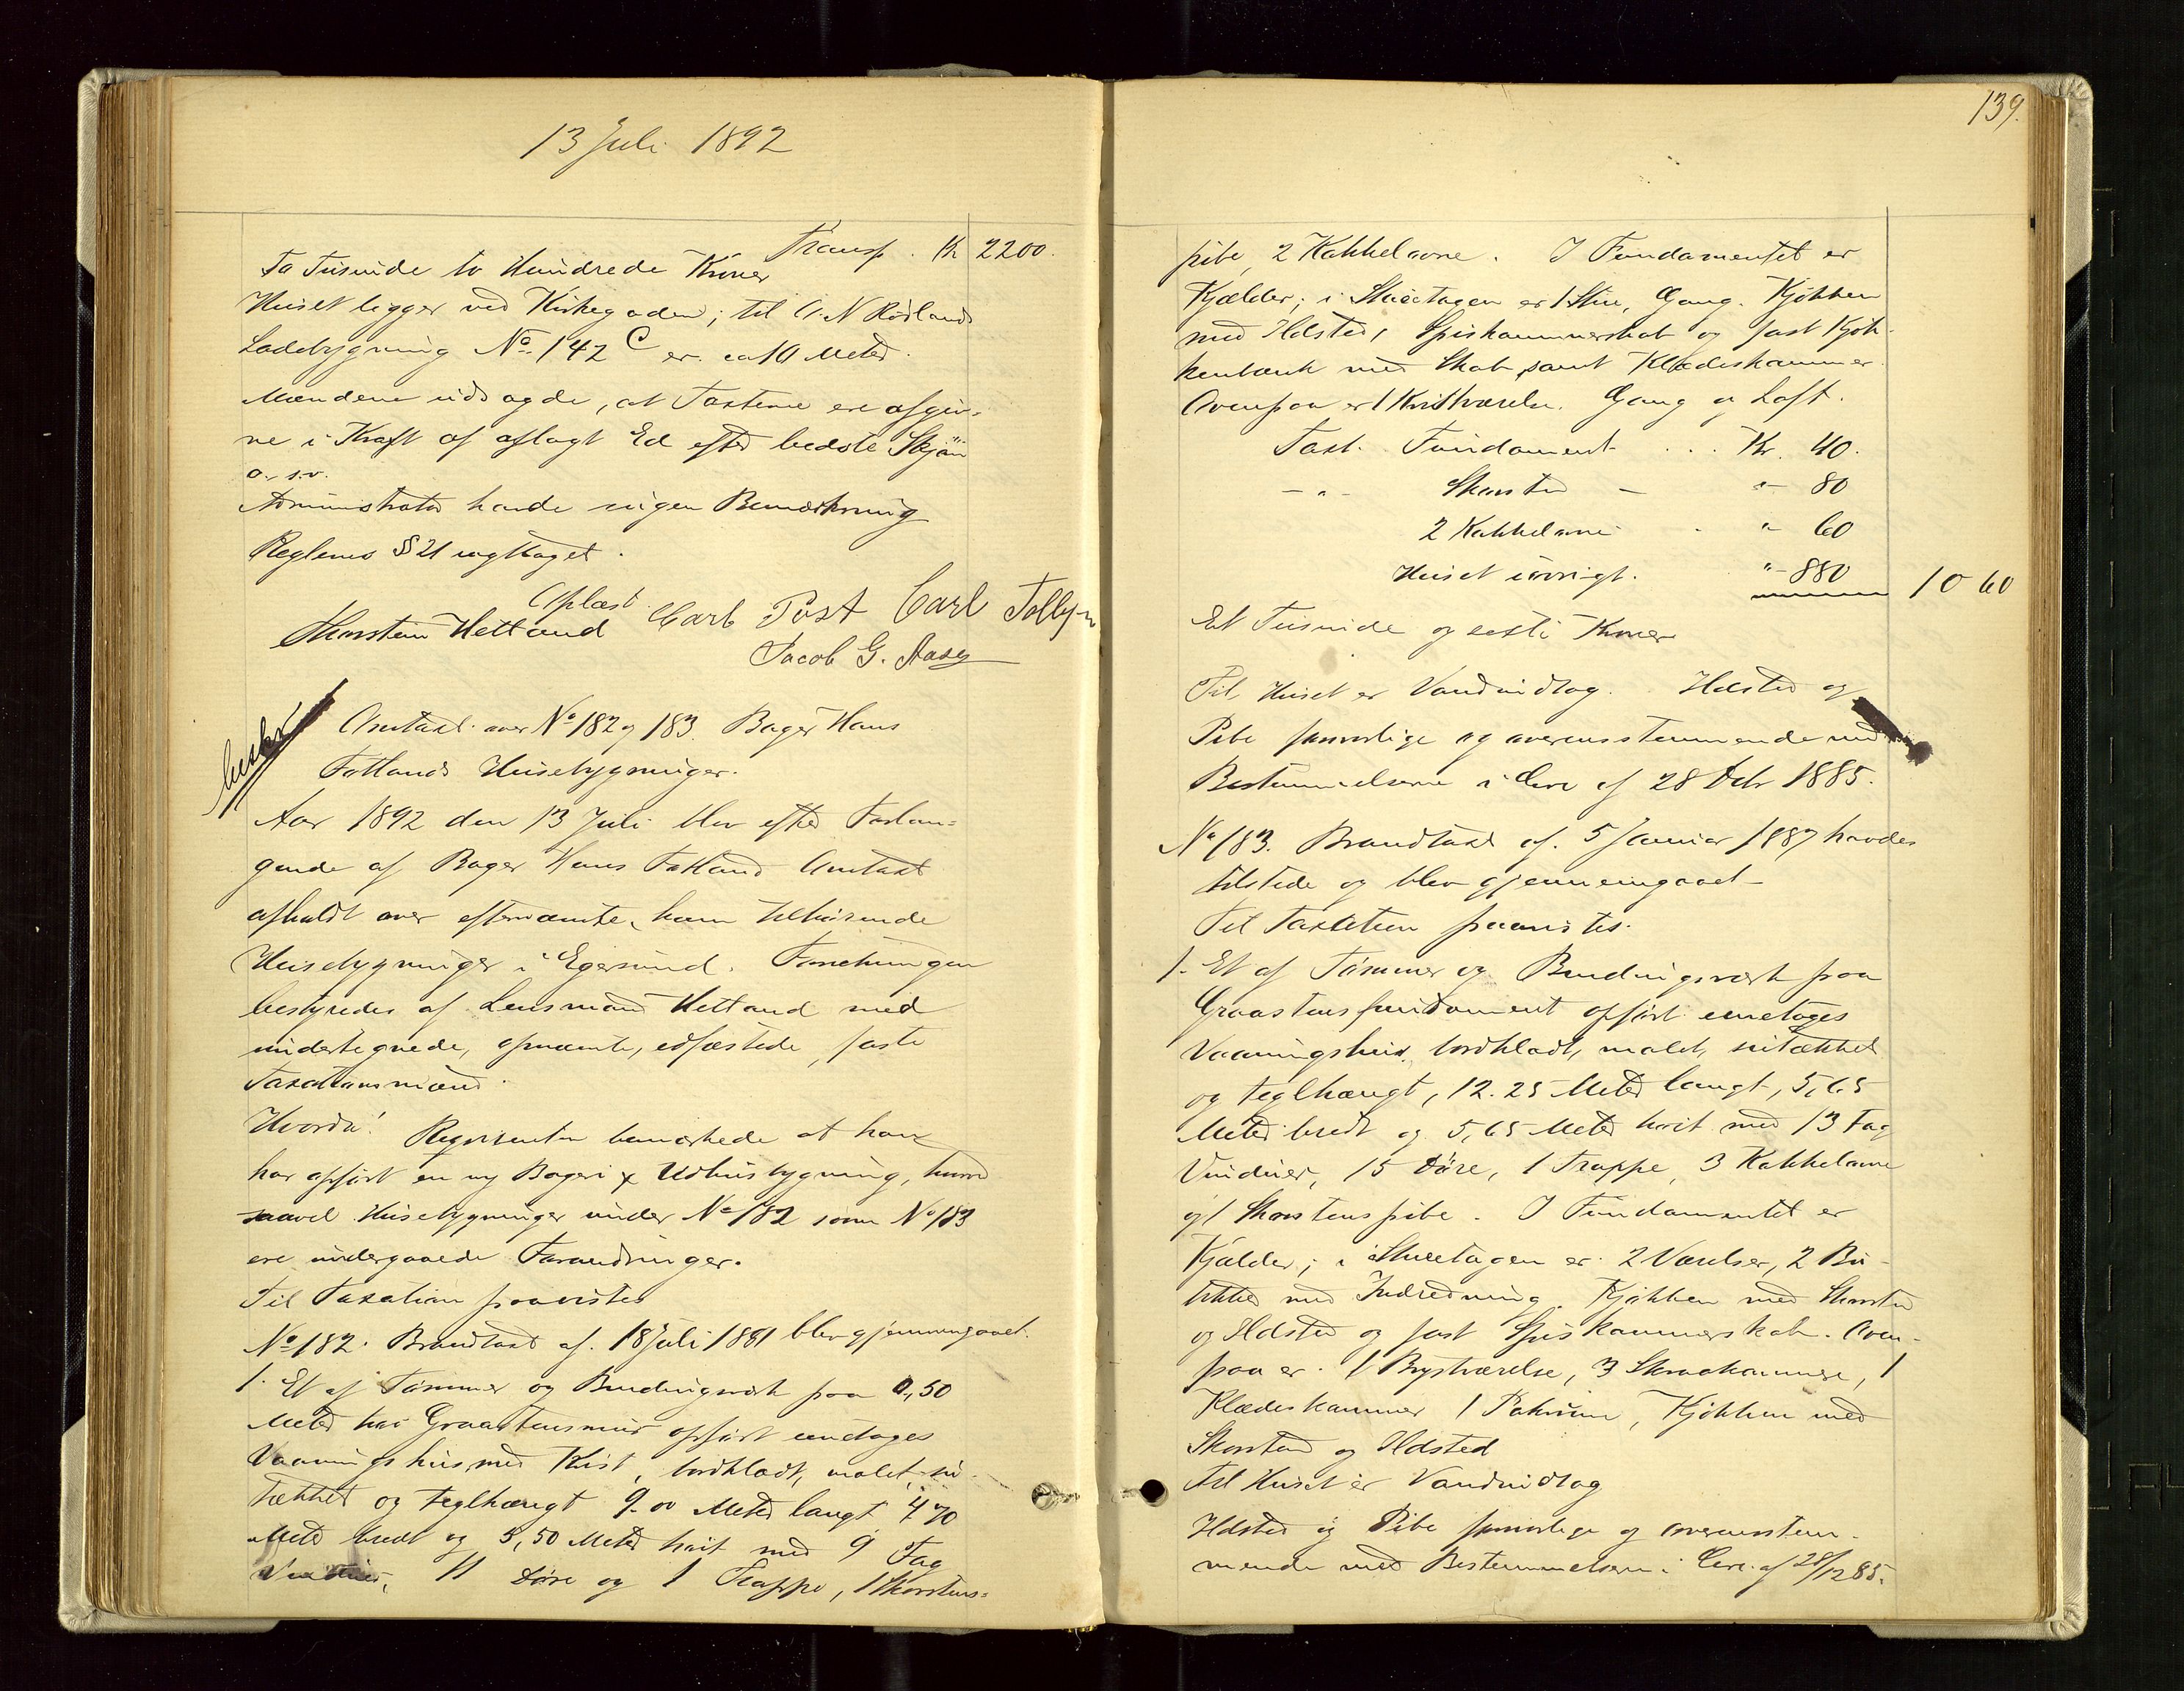 13 Juli 1892
Transp. Kr 2200.
To Tusinde to Hundrede Kroner
Huset ligger ved Kirkegaden; til A. N Rødlands
Ladebygning No. 142 C er ca 10 Meter.
Mændene udsagde, at Taxterne ere afgiv-
ne i Kraft af aflagt Ed efter bedste Skjøn
o. s. v.
Administrator havde ingen Bemærkning
Reglens § 21 iagttaget.
Oplæst
Thorstein Hetland Carl Pust Carl Tolly
Jacob G. Aase
beskr
Omtaxt over No 182 og 183. Bager Hans
Fotlands Husebygninger.
Aar 1892 den 13 Juli blev efter Forlan-
gende af Bager Hans Fotland Omtaxt
afholdt over efternævnte, ham tilhørende
Husebygninger i Egersund. Forretningen
bestyredes af Lensmand Hetland med
undertegnede, opnævnte, edfæstede, faste
Taxationsmænd.
Hvorda! Reqvirenten bemærkede at han
har opført en ny Bageri & Udhusbygning, hvorhos
saavel Husebygninger under No 182 som No 183
ere undergaaede Forandringer.
Til Taxation paavistes
No 182. Brandtaxt af 18 Juli 1881 blev gjennemgaaet.
1. Et af Tømmer og Bindingsverk paa 0,50
Meter høi Graastensmur opført eenetages
Vaaningshus med Kvist, bordklædt, malet, ni-
tækket og teglhængt 9.00 Meter langt 4 70
Meter bredt og 5,50 Meter høit med 9 Fag
Vinduer, 11 Døre og 1 Trappe, 1 Skorstens-
139.
pibe, 2 Kakkelovne. I Fundamentet er
Kjælder; i Stueetagen er 1 Stue, Gang. Kjøkken
med Ildsted, Spiskammerskab og fast Kjøk-
kenbænk med Skab, samt Klædeskammer.
Ovenpaa er 1 Kvistværelse. Gang og Loft.
Taxt. Fundament . . . Kr. 40.
- " - Skorsten - " 80
2 Kakkelovne . " 60
Huset iøvrigt. " 880 1060
Et Tusinde og sexti Kroner
Til Huset er Vandindlag. Ildsted og
Pibe forsvarlige og overensstemmende med
Bestemmelserne i Circ af 28 Decbr 1885.
No 183. Brandtaxt af. 5 Januar 1887 havdes
tilstede og blev gjennemgaaet -
Til Taxation paavistes.
1. Et af Tømmer og Bindingsverk paa
Graastensfundament opført eenetages
Vaaningshus, bordklædt, malet, nitækket
og teglhængt, 12.25 Meter langt, 5,65
Meter bredt og 5,65 Meter høit med 13 Fag
Vinduer, 15 Døre, 1 Trappe, 3 Kakkelovne
og 1 Skorstenspibe. I Fundamentet er
Kjælder; i Stueetagen er 2 Værelser, 2 Bu-
tikker med Indredning. Kjøkken med Skorsten
og Ildsted og fast Spiskammerskab. Oven-
paa er 1 Brystværelse, 3 Skraakammere, 1
Klædeskammer 1 Pakrum, Kjøkken med
Skorsten og Ildsted
Til Huset er Vandindlag
Ildsted og Pibe forsvarlige og overensstem-
mende med Bestemmelserne i Circ. af 28/12 85.